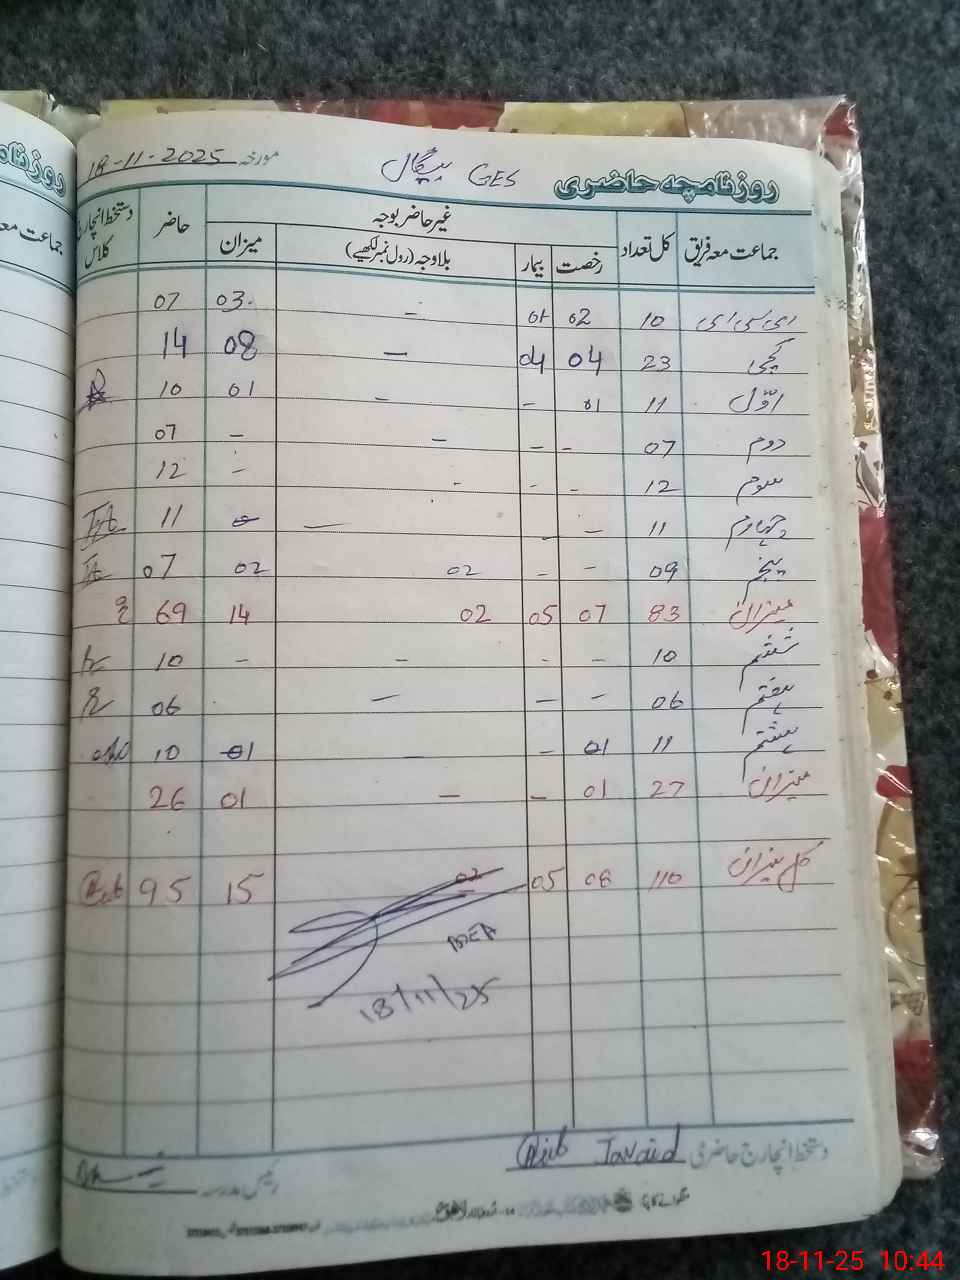 روزنامچہ حاضری GES بیگال مورخہ 18-11-2025
جماعت معہ فریق کل تعداد غیر حاضر بوجہ حاضر دستخط انچارج کلاس
رخصت بیمار بلاوجہ (رول نمبر لکھیے) میزان
ای سی ای 10 02 01 - 03 07
کچی 23 04 04 - 08 14
اوّل 11 01 - - 01 10
دوم 07 - - - - 07
سوم 12 - - - - 12
چہارم 11 - - - 11
پنجم 09 - - 02 02 07
میزان 83 07 05 02 14 69
ششم 10 - - - - 10
ہفتم 06 - - - 06
ہشتم 11 01 - - 01 10
میزان 27 01 - - 01 26
کل میزان 110 08 05 02 15 95
18/11/25
دستخط انچارج حاضری Javaid
رئیس مدرسہ
18-11-25 10:44
جماعت معہ